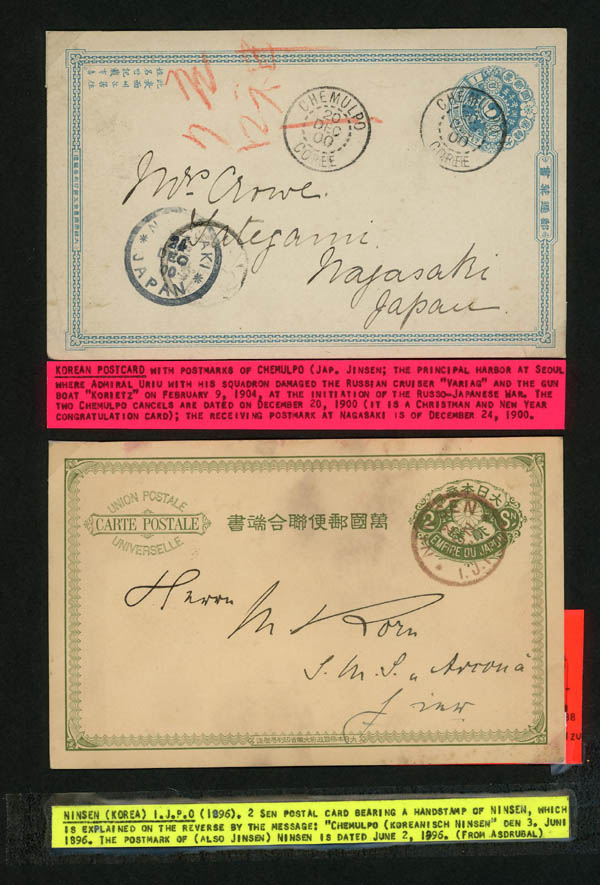 CHEMULPO
20
DEC
00
COREE
CHEMULPO
00
COREE
郵通葉書
Mrs. Crowe.
Nagasaki
Japan
AKI
24
DEC
00
JAPAN
KOREAN POSTCARD WITH POSTMARKS OF CHEMULPO (JAP. JINSEN; THE PRINCIPAL HARBOR AT SEOUL
WHERE ADMIRAL URIU WITH HIS SQUADRON DAMAGED THE RUSSIAN CRUISER "VARIAG" AND THE GUN
BOAT "KORIETZ" ON FEBRUARY 9, 1904, AT THE INITIATION OF THE RUSSO-JAPANESE WAR. THE
TWO CHEMULPO CANCELS ARE DATED ON DECEMBER 20, 1900 (IT IS A CHRISTMAN AND NEW YEAR
CONGRATULATION CARD); THE RECEIVING POSTMARK AT NAGASAKI IS OF DECEMBER 24, 1900.
UNION POSTALE
CARTE POSTALE
UNIVERSELLE
書端合聯便郵國萬
大日本帝國
2 Sn
EMPIRE DU JAPON
Herrn
M Korn
S. M. S. "Arcona"
hier
NINSEN (KOREA) I.J.P.O (1896). 2 SEN POSTAL CARD BEARING A HANDSTAMP OF NINSEN, WHICH
IS EXPLAINED ON THE REVERSE BY THE MESSAGE: "CHEMULPO (KOREANISCH NINSEN" DEN 3. JUNI
1896. THE POSTMARK OF (ALSO JINSEN) NINSEN IS DATED JUNE 2, 1896. (FROM ASDRUBAL)